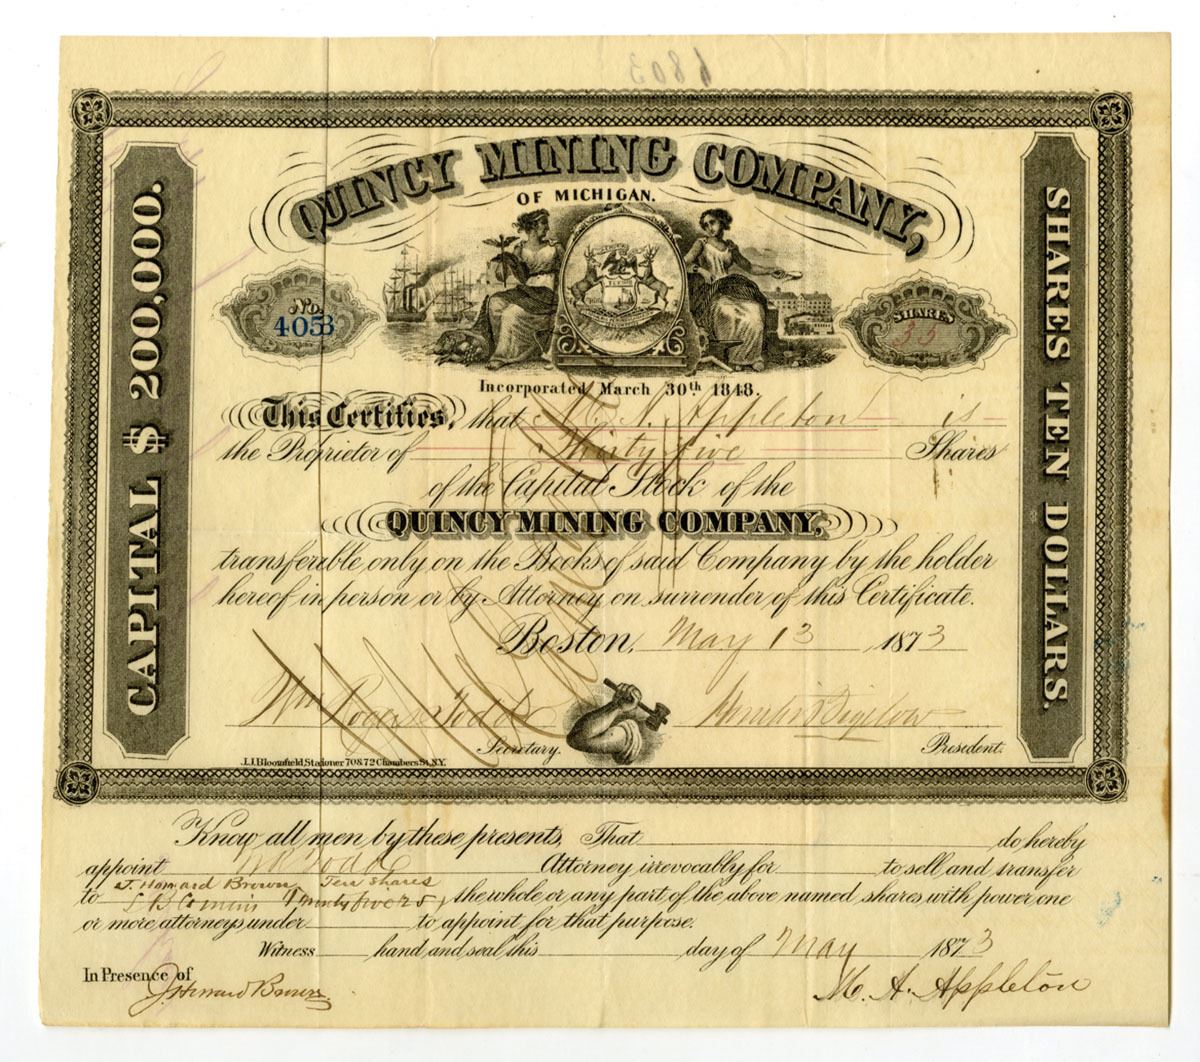 6803
QUINCY MINING COMPANY,
OF MICHIGAN.
CAPITAL $ 200,000.
SHARES TEN DOLLARS.
No.
4053
SHARES
35
Incorporated March 30th 1848.
This Certifies, that M. A. Appleton is
the Proprietor of Thirty five Shares
of the Capital Stock of the
QUINCY MINING COMPANY,
transferable only on the Books of said Company by the holder
hereof in person or by Attorney on surrender of this Certificate.
Boston, May 13 1873
Wm Rogers Todd Bigelow
Secretary. President.
J.J. Bloomfield, Stationer 70 & 72 Chambers St. N.Y.
Know all men by these presents, That do hereby
appoint W R Todd Attorney irrevocably for to sell and transfer
J. Howard Brown Ten shares
to the whole or any part of the above named shares with power one
or more attorneys under to appoint for that purpose.
Witness hand and seal this day of May 1873
In Presence of
J. Howard Brown M. A. Appleton